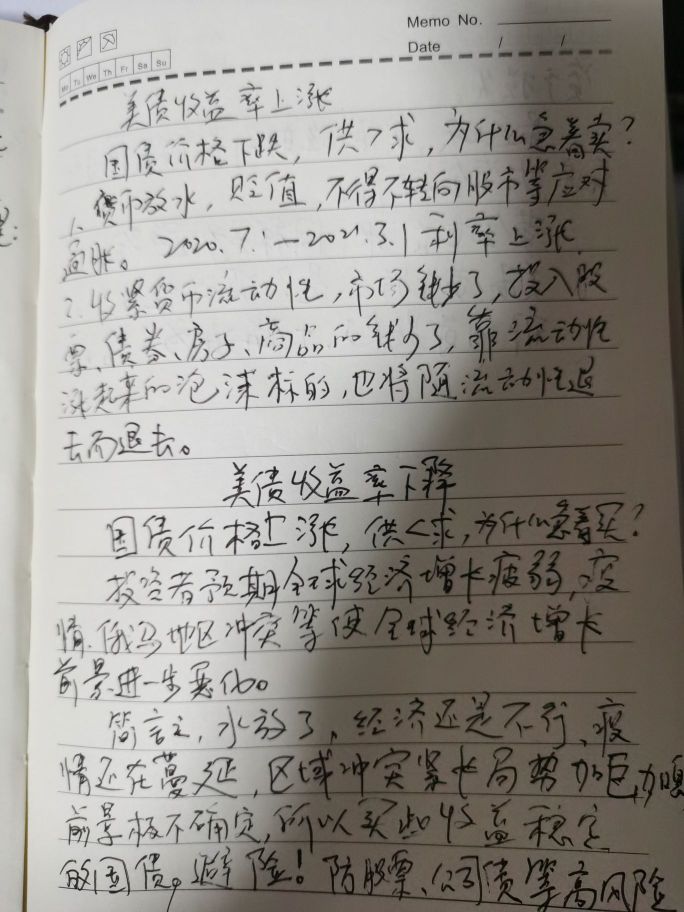 Memo No.
Date / /
Mo Tu We Th Fr Sa Su
美债收益率上涨
国债价格下跌，供>求，为什么急着卖?
1、货币放水，贬值，不得不转向股市等应对
通胀。2020.7.1—2021.3.1利率上涨
2.收紧货币流动性，市场钱少了，投入股
票、债券、房子、商品的钱少了，靠流动性
涨起来的泡沫标的，也将随流动性退
去而退去。
美债收益率下降
国债价格上涨，供<求，为什么急着买?
投资者预期全球经济增长疲弱，疫
情、俄乌地区冲突等使全球经济增长
前景进一步恶化。
简言之，水放了，经济还是不行，疫
情还在蔓延，区域冲突紧张局势加巨，
前景极不确定，所以买些收益稳定
的国债，避险！防股票、公司债等高风险